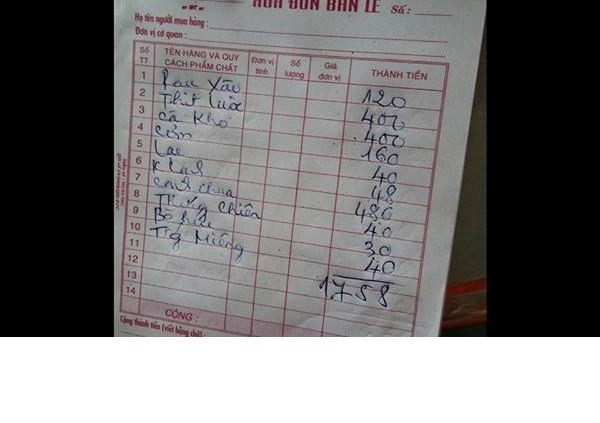 HÓA ĐƠN BÁN LẺ Số:
Họ tên người mua hàng:
Đơn vị cơ quan:
Số TT TÊN HÀNG VÀ QUY CÁCH PHẨM CHẤT Đơn vị tính Số lượng Giá đơn vị THÀNH TIỀN
1 Rau xào 120
2 Thịt luộc 400
3 cá kho 400
4 cơm 160
5 Lạc 40
6 K lạnh 48
7 canh chua 480
8 Trứng chiên 40
9 Bò húc 30
10 Miếng 40
11
12
13 1758
14
CỘNG:
Cộng thành tiền (viết bằng chữ):